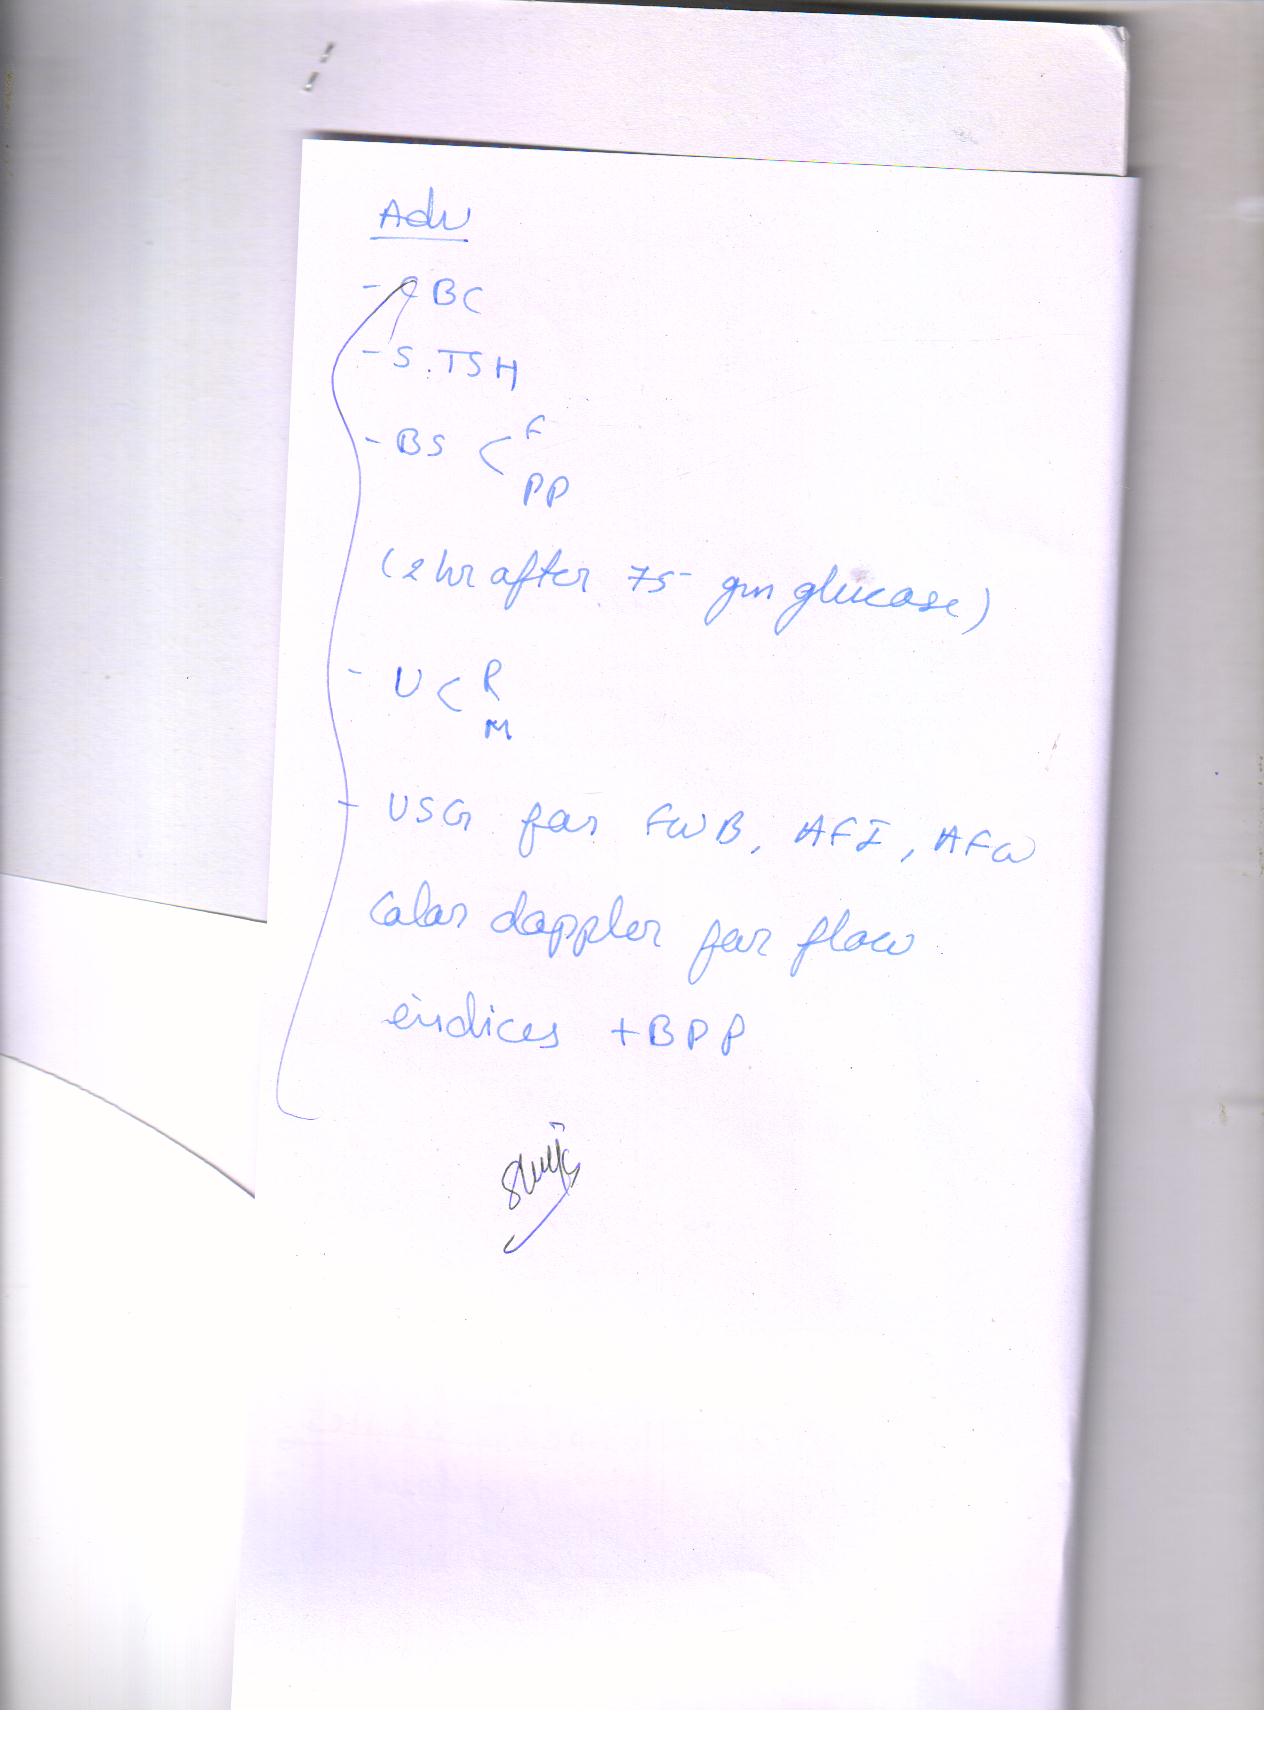 Adv
- CBC
- S. TSH
- BS < F
PP
(2 hr after 75 gm glucose)
- U < R
M
- USG for FWB, AFI, AFW
Color doppler for flow
indices + BPP